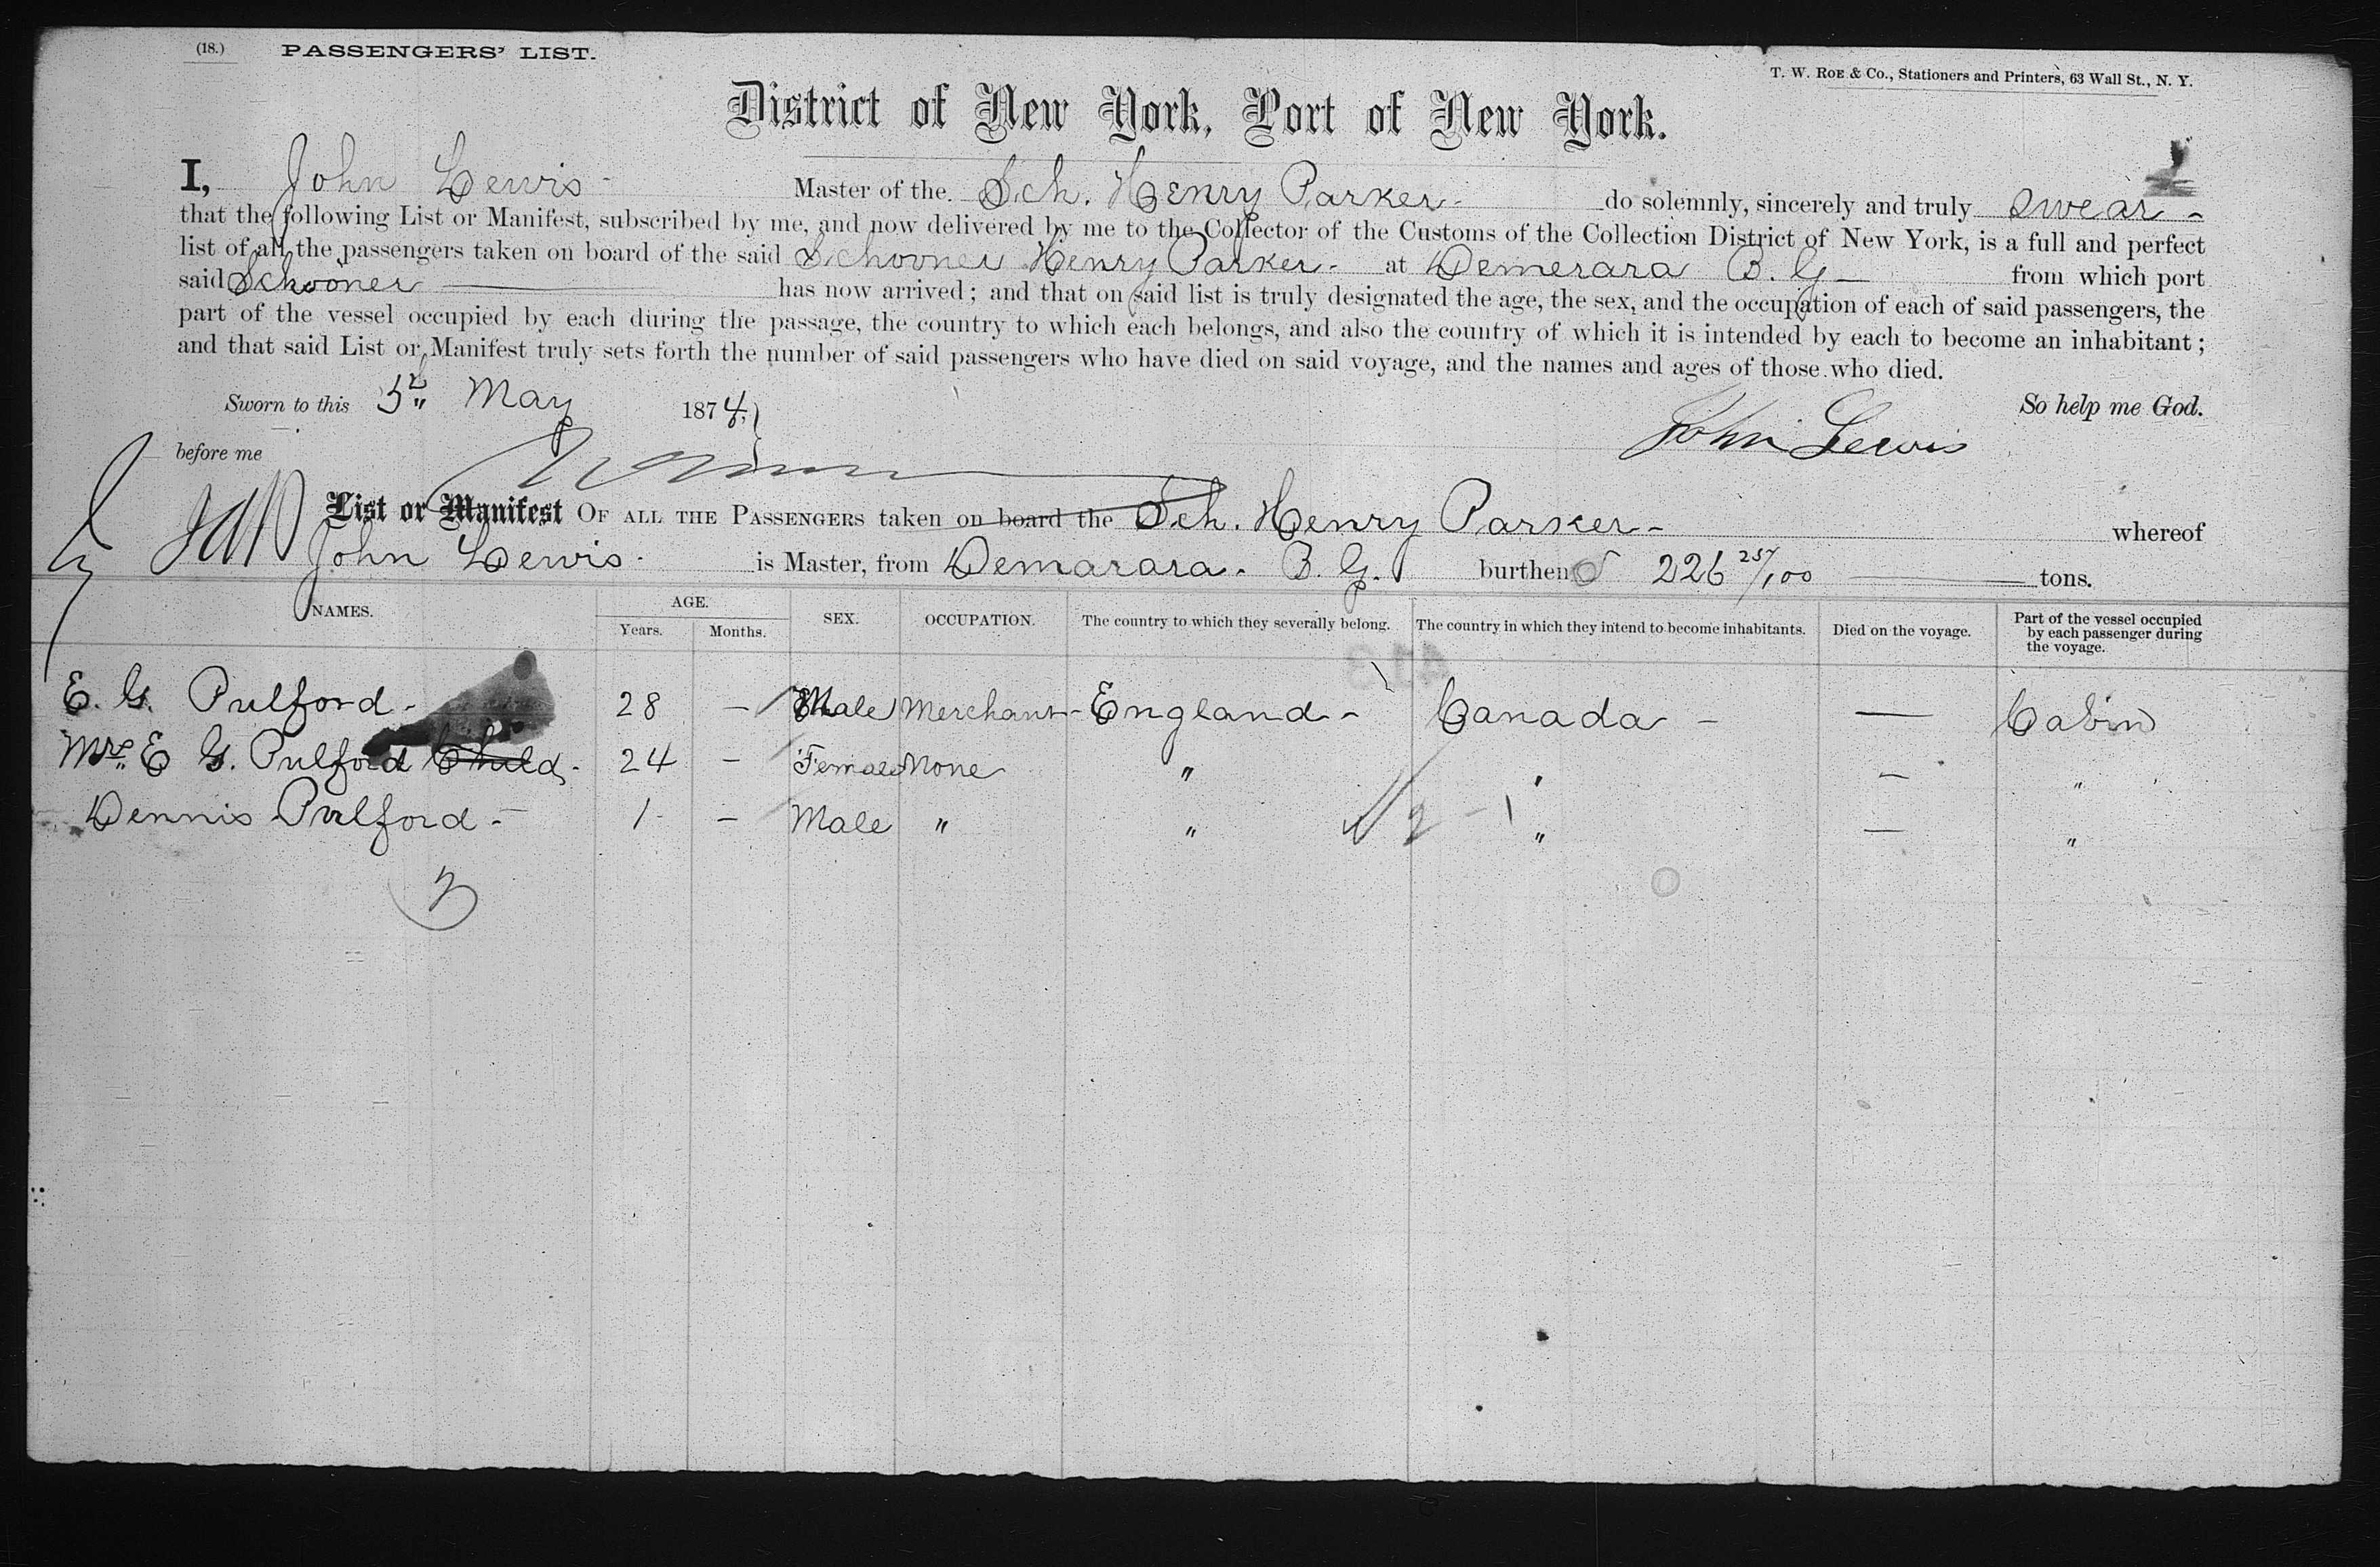 (18.) PASSENGERS' LIST.
T. W. ROE & Co., Stationers and Printers, 63 Wall St., N. Y.
District of New York, Port of New York.
I, John Lewis - Master of the Sch. Henry Parker - do solemnly, sincerely and truly swear -
that the following List or Manifest, subscribed by me, and now delivered by me to the Collector of the Customs of the Collection District of New York, is a full and perfect
list of all the passengers taken on board of the said Schooner Henry Parker - at Demerara B. G - from which port
said Schooner has now arrived; and that on said list is truly designated the age, the sex, and the occupation of each of said passengers, the
part of the vessel occupied by each during the passage, the country to which each belongs, and also the country of which it is intended by each to become an inhabitant;
and that said List or Manifest truly sets forth the number of said passengers who have died on said voyage, and the names and ages of those who died.
Sworn to this 5th May 1874, So help me God.
John Lewis
before me
List or Manifest OF ALL THE PASSENGERS taken on board the Sch. Henry Parker - whereof
John Lewis - is Master, from Demarara - B. G. burthen 226 257/100 tons.
NAMES. AGE. SEX. OCCUPATION. The country to which they severally belong. The country in which they intend to become inhabitants. Died on the voyage. Part of the vessel occupied by each passenger during the voyage.
Years. Months.
E. G. Pulford - 28 - Male Merchant - England - Canada - — Cabin
Mrs. E G. Pulford Child - 24 - Female None " " — "
Dennis Pulford - 1 - - Male " " " — "
2 - 1
3